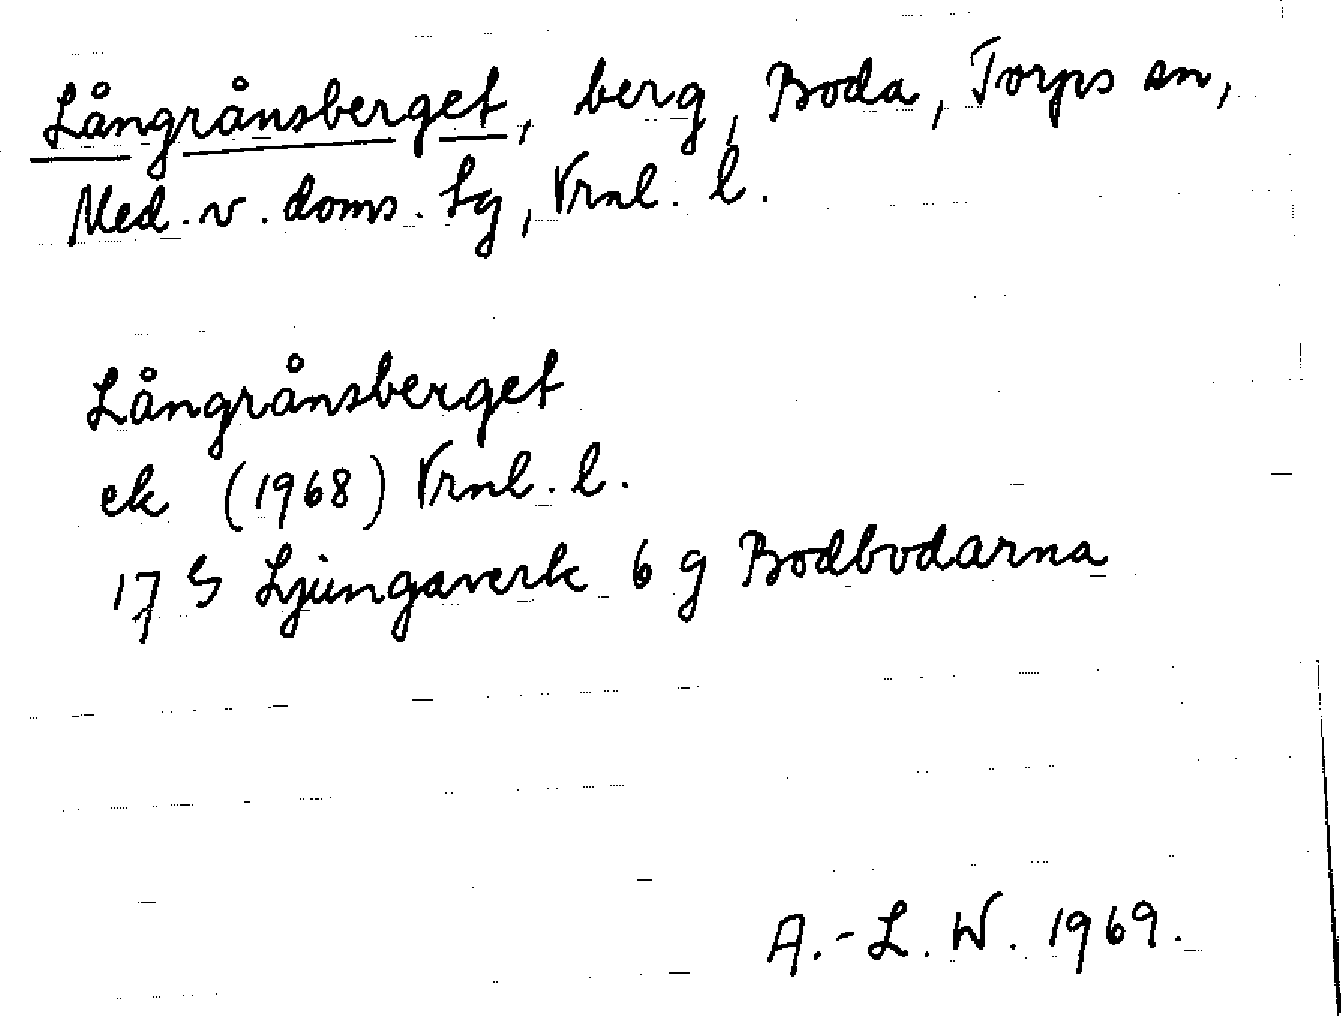 Långrånsberget, berg, Boda, Torps sn,
Med. v. doms. Lg, Vrnl. l.
Långrånsberget
ek (1968) Vrnl. l.
17 S Ljungaverk 6 g Bodbodarna
A.-L. W. 1969.